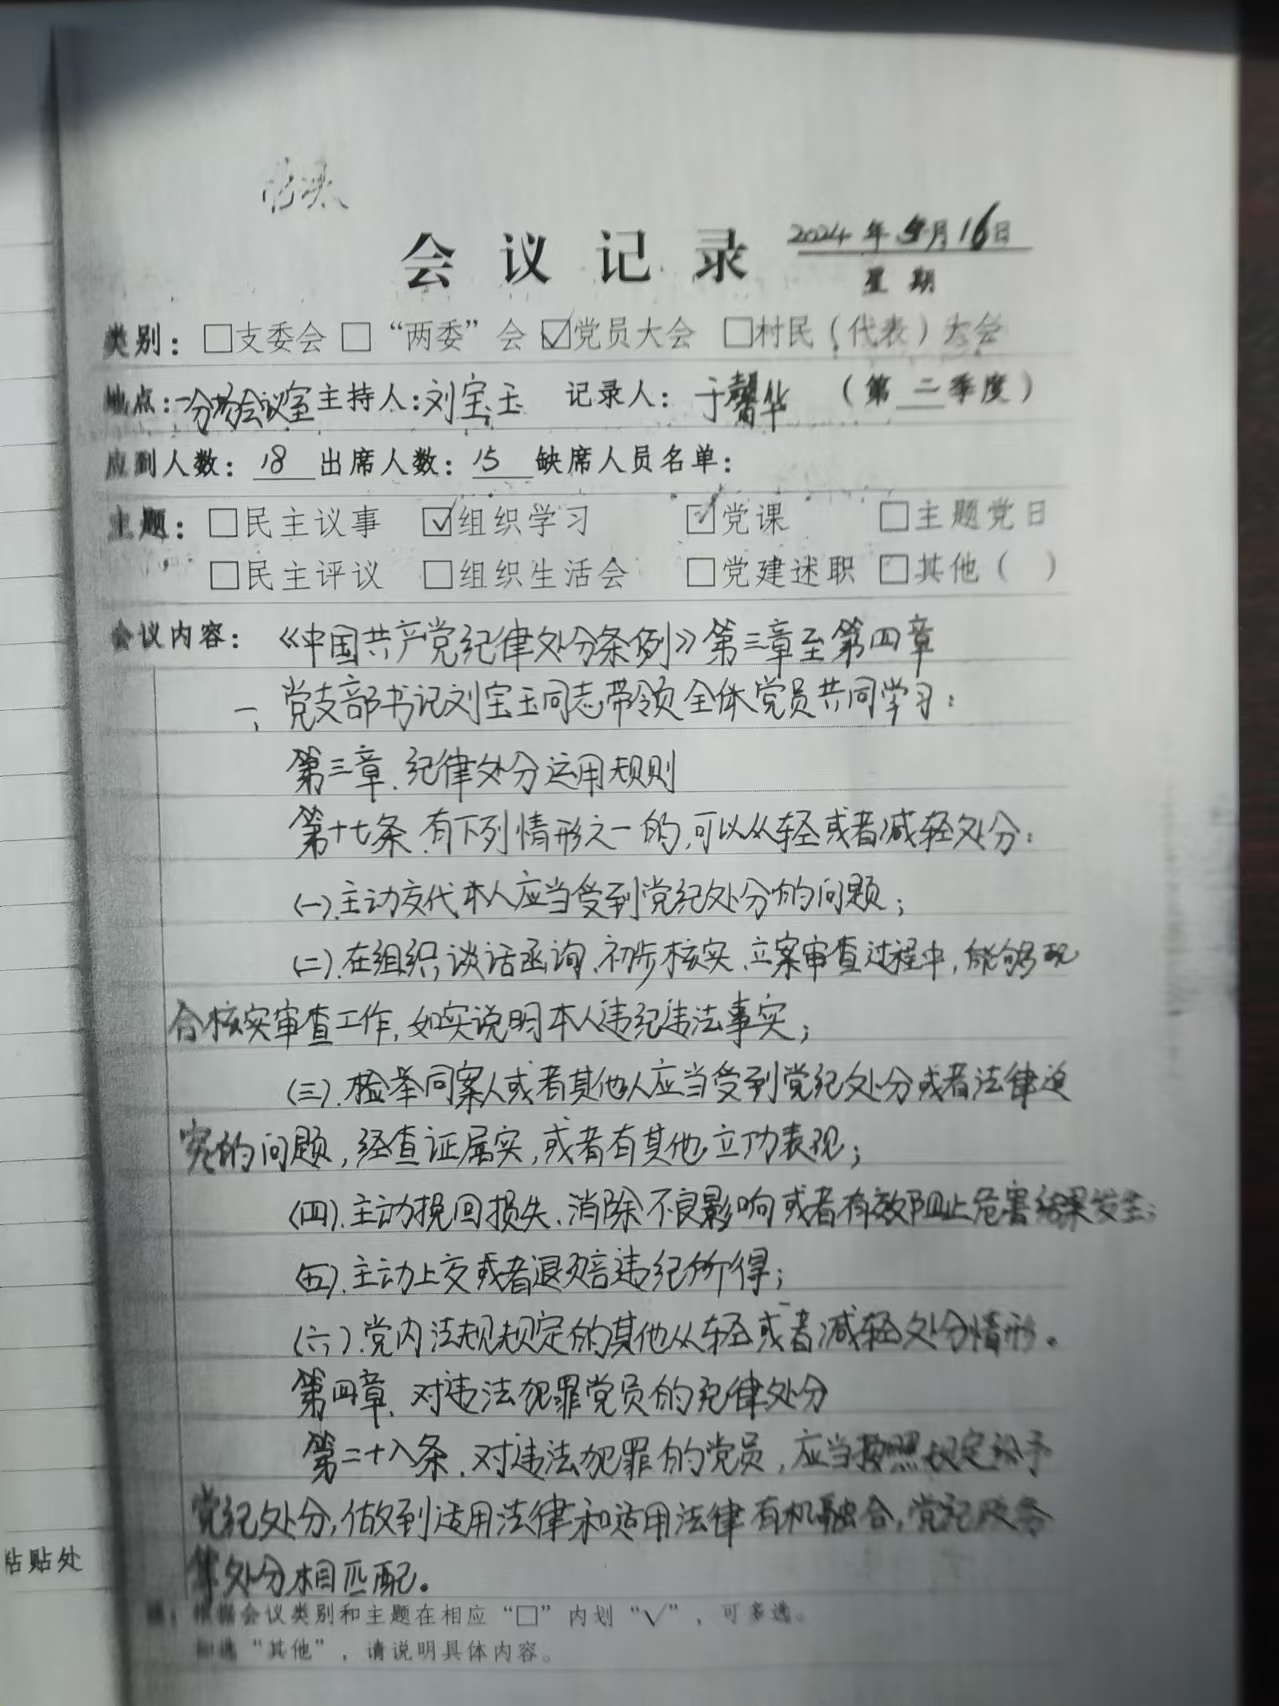 会议记录
2024年5月16日
星期
类别：□支委会 □“两委”会 ☑党员大会 □村民（代表）大会
地点：一分场会议室 主持人：刘宝玉 记录人：于馨华 （第二季度）
应到人数：18 出席人数：15 缺席人员名单：
主题：□民主议事 ☑组织学习 ☑党课 □主题党日
□民主评议 □组织生活会 □党建述职 □其他（ ）
会议内容：《中国共产党纪律处分条例》第三章至第四章
一、党支部书记刘宝玉同志带领全体党员共同学习：
第三章、纪律处分运用规则
第十七条、有下列情形之一的，可以从轻或者减轻处分：
（一）、主动交代本人应当受到党纪处分的问题；
（二）、在组织谈话函询、初步核实、立案审查过程中，能够配
合核实审查工作，如实说明本人违纪违法事实；
（三）、检举同案人或者其他人应当受到党纪处分或者法律追
究的问题，经查证属实，或者有其他立功表现；
（四）、主动挽回损失、消除不良影响或者有效阻止危害结果发生；
（五）、主动上交或者退赔违纪所得；
（六）、党内法规规定的其他从轻或者减轻处分情形。
第四章、对违法犯罪党员的纪律处分
第二十八条、对违法犯罪的党员，应当按照规定给予
党纪处分，做到适用法律和适用法律有机融合，党纪政务
等处分相匹配。
注：根据会议类别和主题在相应“□”内划“√”，可多选。
如选“其他”，请说明具体内容。
粘贴处